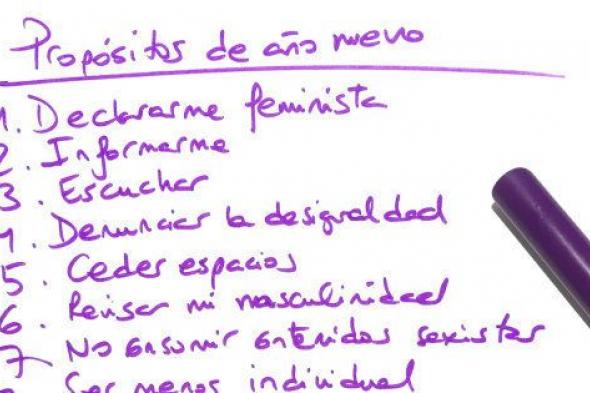 Propósitos de año nuevo
1. Declararme feminista
2. Informarme
3. Escuchar
4. Denunciar la desigualdad
5. Ceder espacios
6. Revisar mi masculinidad
7 No consumir contenidos sexistas
Ser menos individual